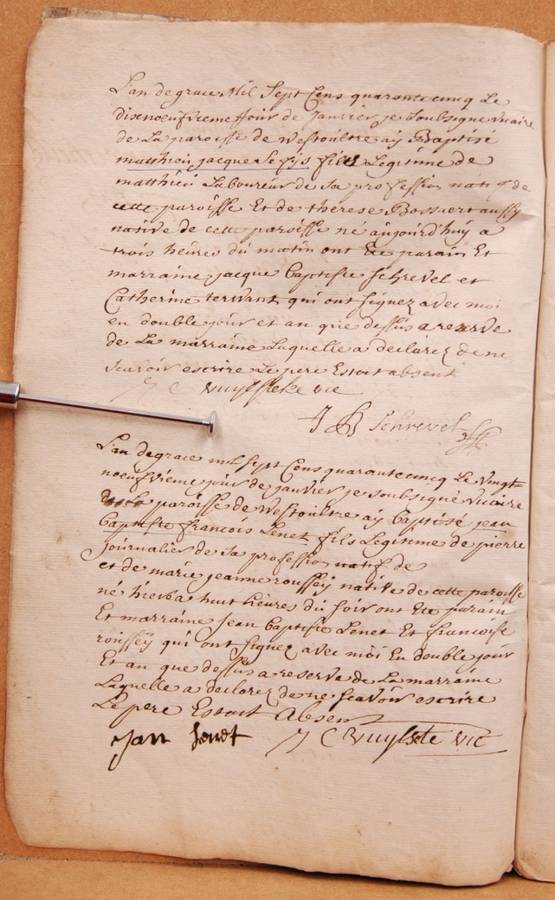 L'an de grace Mil Sept Cens quarantecinq Le
disenoeufvieme jour de Janvier je soubsigné vicaire
de La paroisse de Westoultre aÿ Baptisé
matthieu jacque fils Legitime de
matthieu Laboureur de sa profession natif de
cette paroisse Et de therese Bossaert aussy
native de cette paroisse né aujourd'huy a
trois heures du matin ont été parain Et
marraine jacque baptiste schrevel et
Catherine terwant qui ont signez avec moi
en double jour et an que dessus a reserve
de La marraine Laquelle a declarez de ne
scavoir escrire Le pere Estoit absent
J C vuylsteke vic
J B Schrevel
L'an de grace mil sept Cens quarantecinq Le vingt
noeufvieme jour de janvier je soubsigné vicaire
de La paroisse de Westoultre aÿ baptisé jean
baptiste francois Lenet fils Legitime de pierre
Journalier de sa profession natif de
et de marie jeanne roussey native de cette paroisse
né hier a huit heures du soir ont été parain
Et marraine jean baptiste Lenet Et francoise
roussey qui ont signez avec moi En double jour
Et an que dessus a reserve de La marraine
Laquelle a declarez de ne scavoir escrire
Le pere Estoit Absent
Jan J C vuylsteke vic